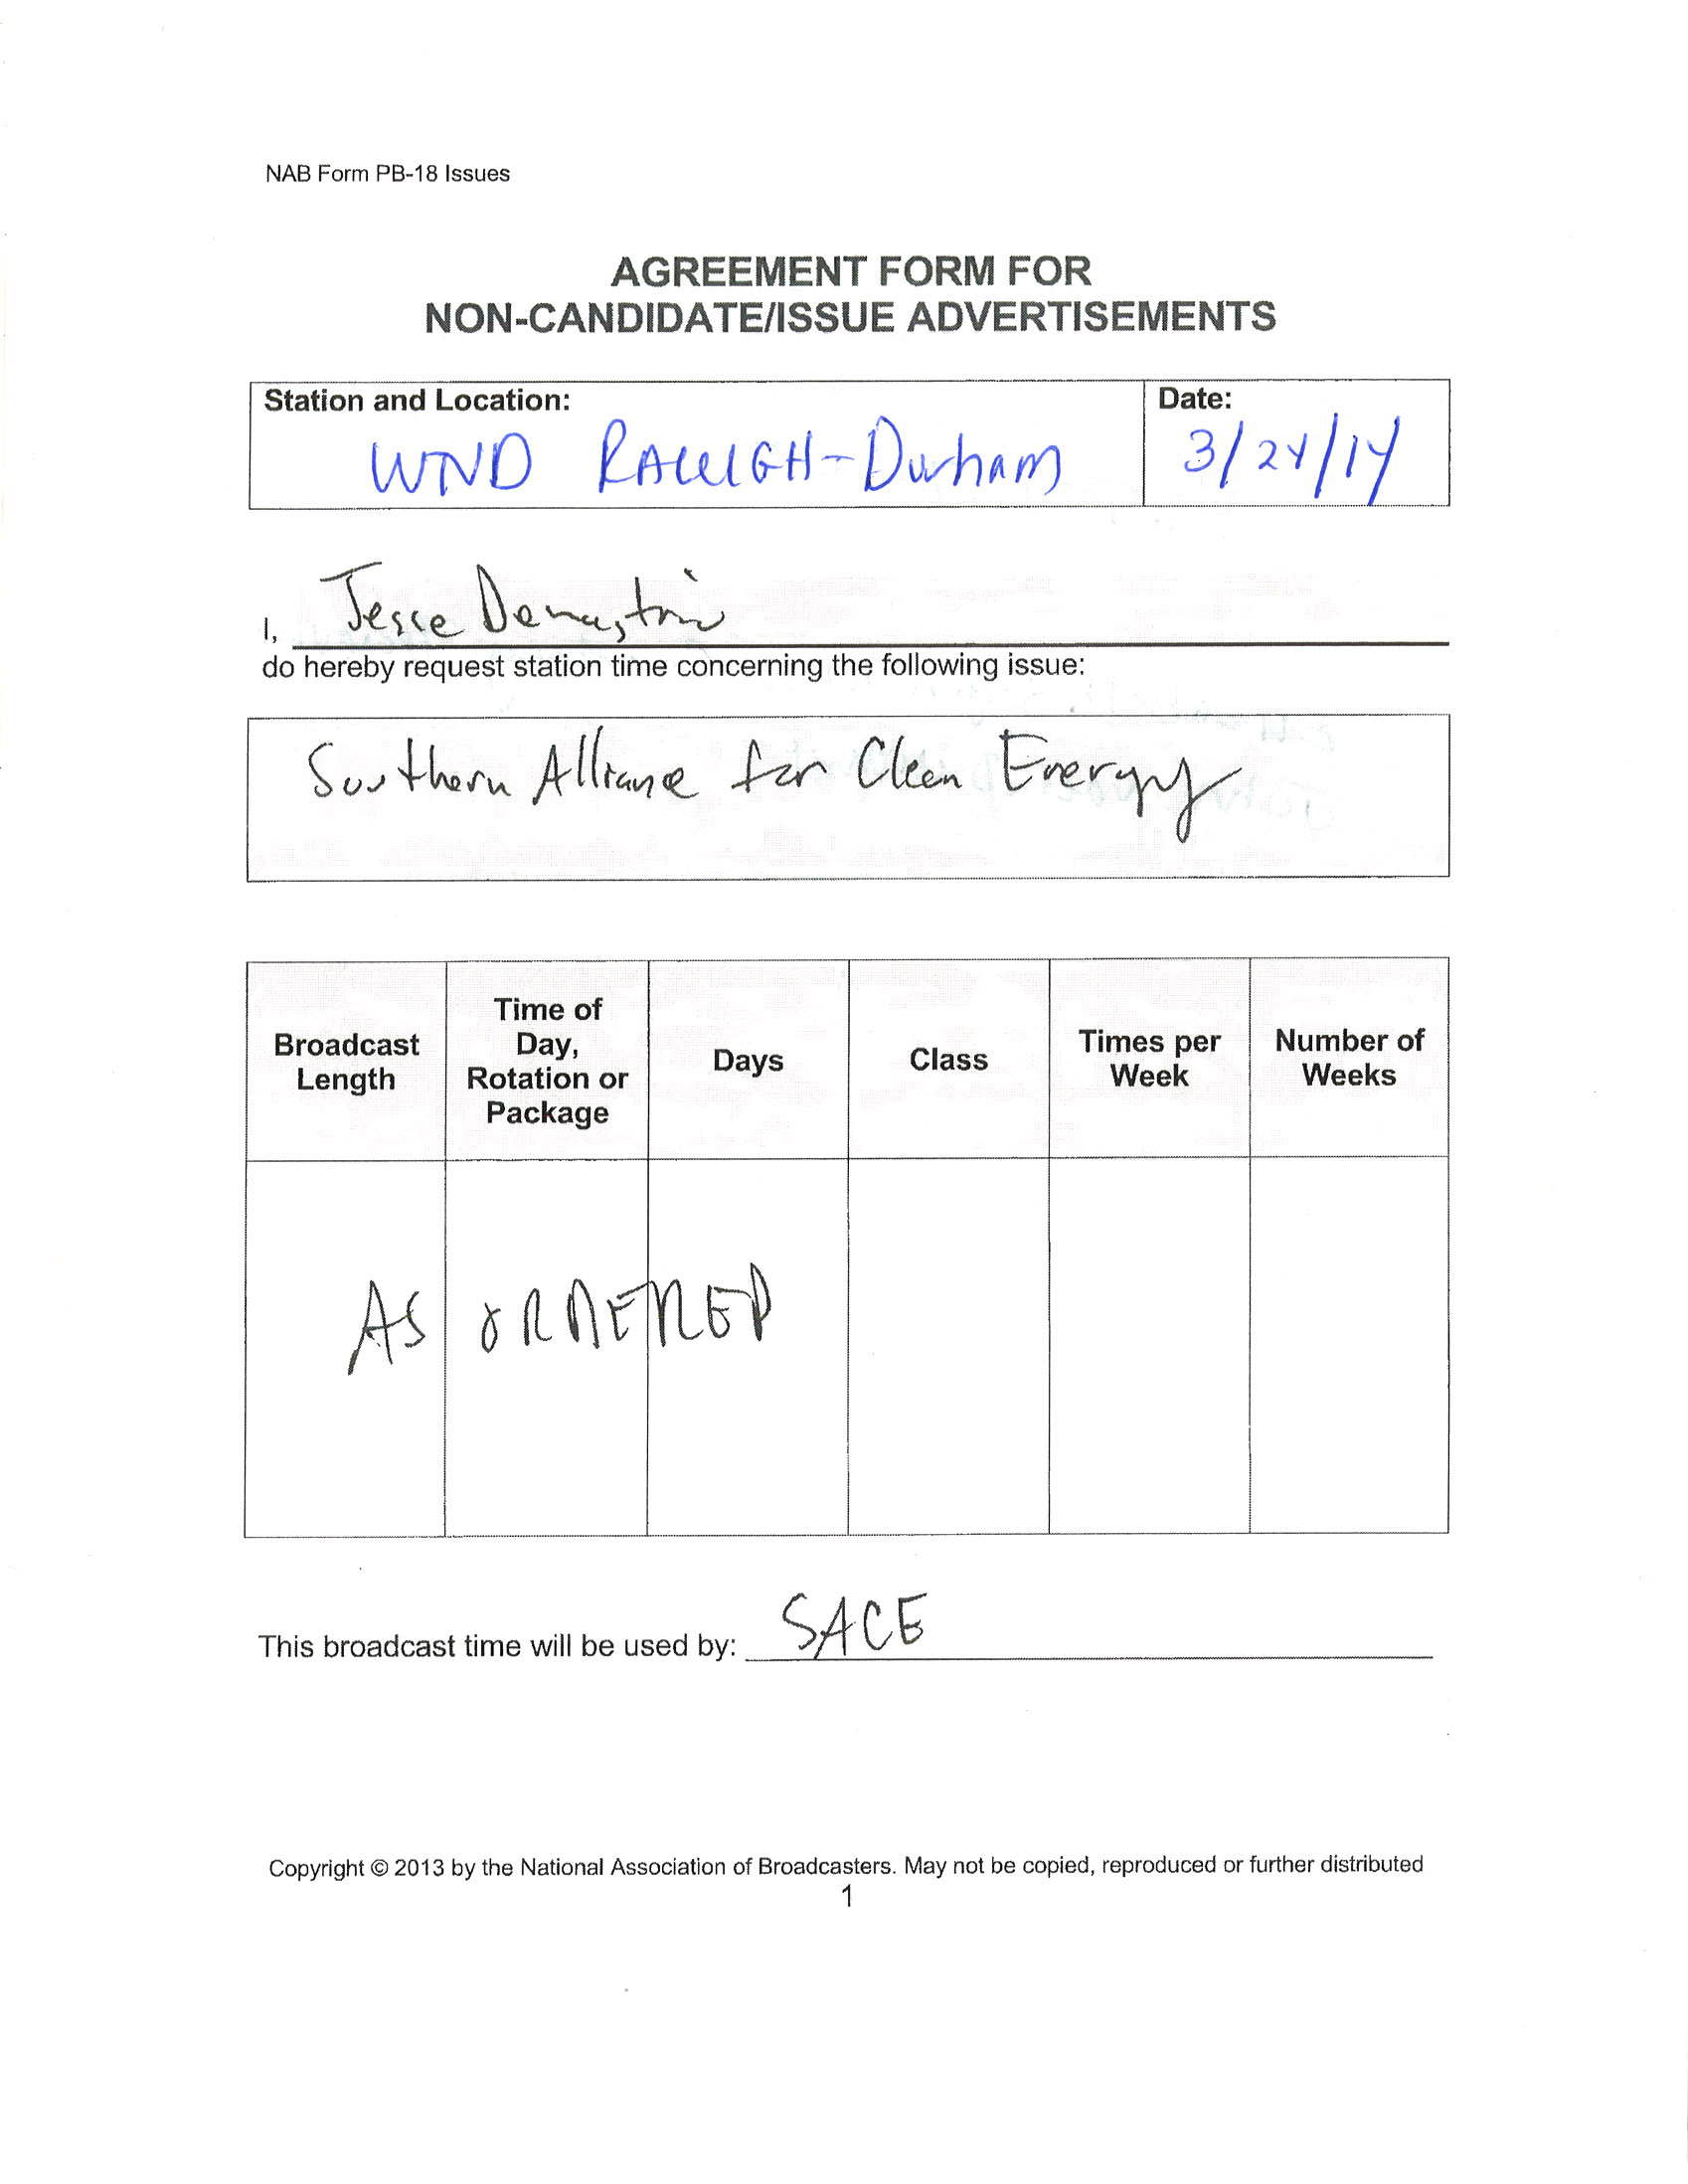 NAB Form PB-18 Issues
AGREEMENT FORM FOR
NON-CANDIDATE/ISSUE ADVERTISEMENTS
Station and Location:
Date:
RALEIGH-Durham
3/24/14
I, Jesse
do hereby request station time concerning the following issue:
Southern Alliance for Clean Energy
Broadcast Length
Time of Day, Rotation or Package
Days
Class
Times per Week
Number of Weeks
AS ORDERED
This broadcast time will be used by: SACE
Copyright © 2013 by the National Association of Broadcasters. May not be copied, reproduced or further distributed
1